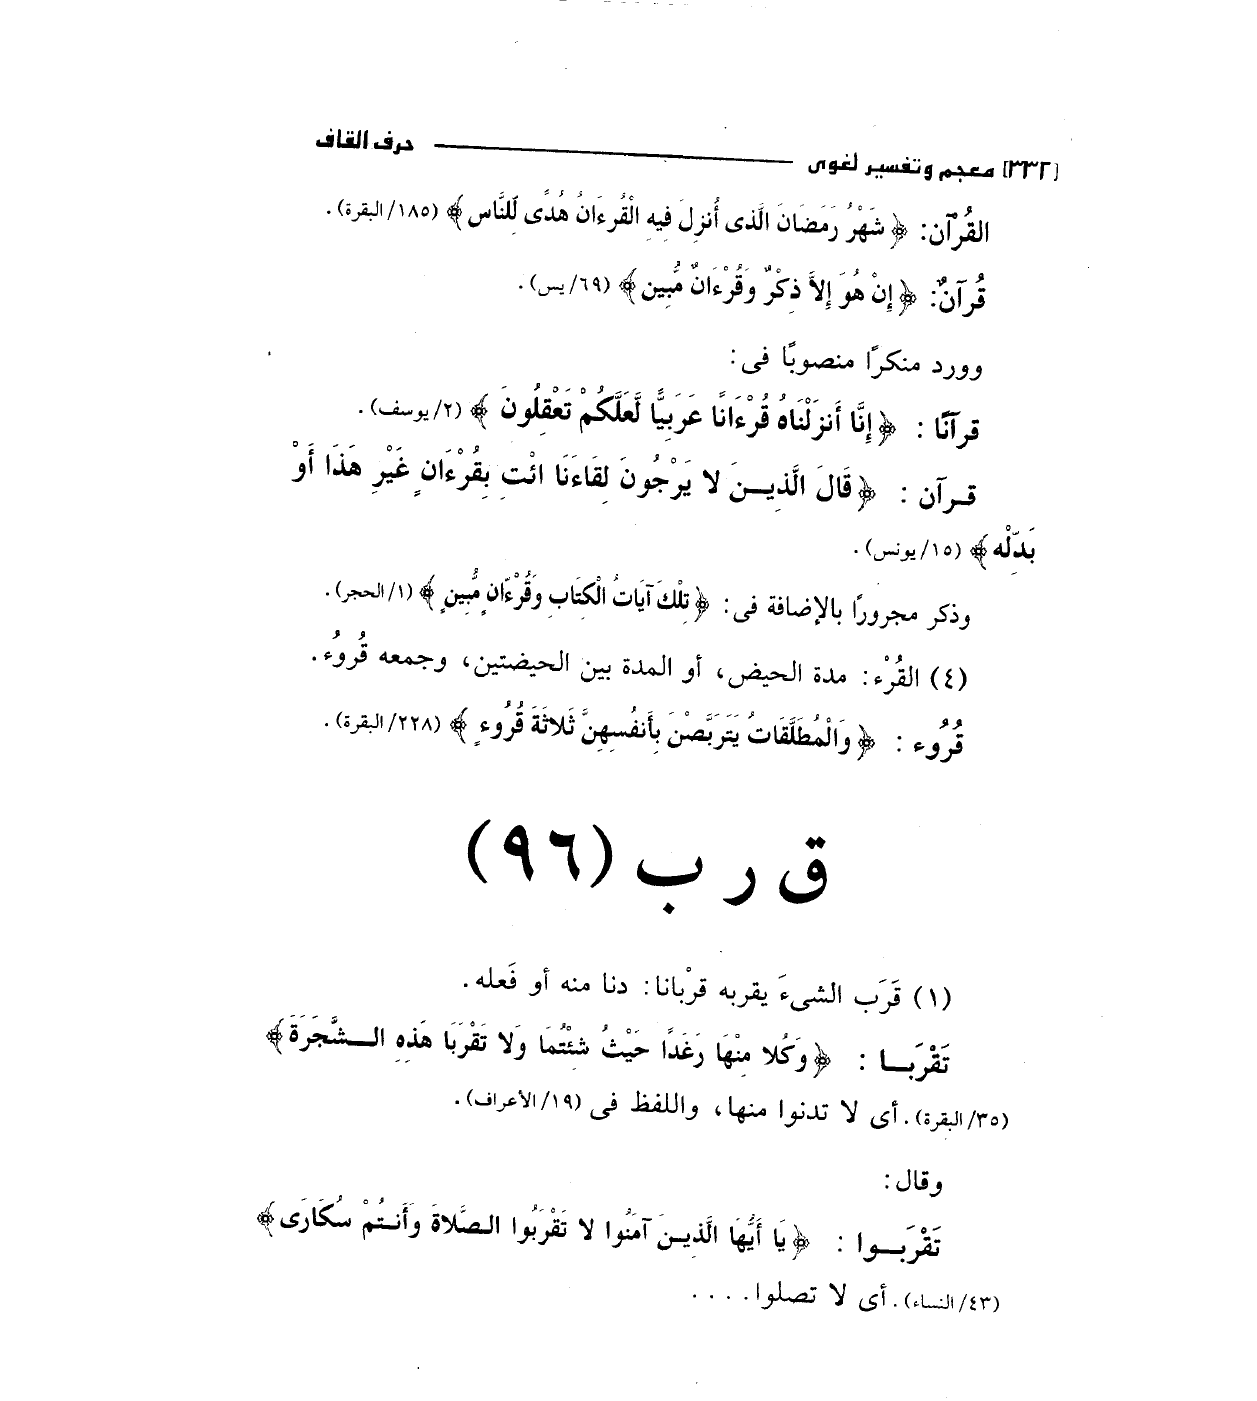 [٣٣٢] معجم وتفسير لغوى حرف القاف
القُرْآن: ﴿شَهْرُ رَمَضَانَ الَّذِى أُنزِلَ فِيهِ الْقُرْءَانُ هُدًى لِّلنَّاسِ﴾ (١٨٥/البقرة).
قُرآنٌ: ﴿إِنْ هُوَ إِلاَّ ذِكْرٌ وَقُرْءَانٌ مُّبِين﴾ (٦٩/يس).
وورد منكرًا منصوبًا فى:
قرآنًا : ﴿إِنَّا أَنزَلْنَاهُ قُرْءَانًا عَرَبِيًّا لَّعَلَّكُمْ تَعْقِلُونَ﴾ (٢/يوسف).
قـرآن : ﴿قَالَ الَّذِيـنَ لا يَرْجُونَ لِقَاءَنَا ائْتِ بِقُرْءَانٍ غَيْرِ هَذَا أَوْ
بَدِّلْه﴾ (١٥/يونس).
وذكر مجرورًا بالإضافة فى: ﴿تِلْكَ آيَاتُ الْكِتَابِ وَقُرْءَانٍ مُّبِينٍ﴾ (١/الحجر).
(٤) القُرْء: مدة الحيض، أو المدة بين الحيضتين، وجمعه قُروُء.
قُرُوء : ﴿وَالْمُطَلَّقَاتُ يَتَرَبَّصْنَ بِأَنفُسِهِنَّ ثَلاثَةَ قُرُوءٍ﴾ (٢٢٨/البقرة).
ق ر ب (٩٦)
(١) قَرَب الشىءَ يقربه قرْبانا: دنا منه أو فَعله.
تَقْرَبَــا : ﴿وَكُلا مِنْهَا رَغَدًا حَيْثُ شِئْتُمَا وَلا تَقْرَبَا هَذِهِ الـــشَّجَرَةَ﴾
(٣٥/البقرة). أى لا تدنوا منها، واللفظ فى (١٩/الأعراف).
وقال:
تَقْرَبــوا : ﴿يَا أَيُّهَا الَّذِيـنَ آمَنُوا لا تَقْرَبُوا الـصَّلاةَ وَأَنـتُمْ سُكَارَى﴾
(٤٣/النساء). أى لا تصلوا. . . .